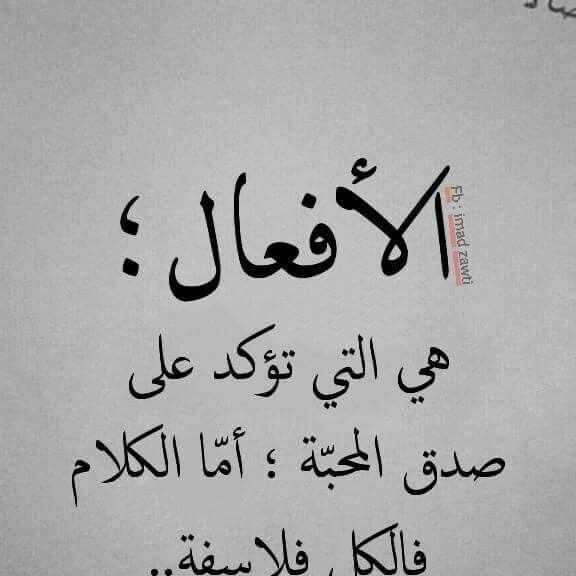 الأفعال ؛
Fb : imad zawti
هي التي تؤكد على
صدق المحبّة ؛ أمّا الكلام
فالكل فلاسفة..